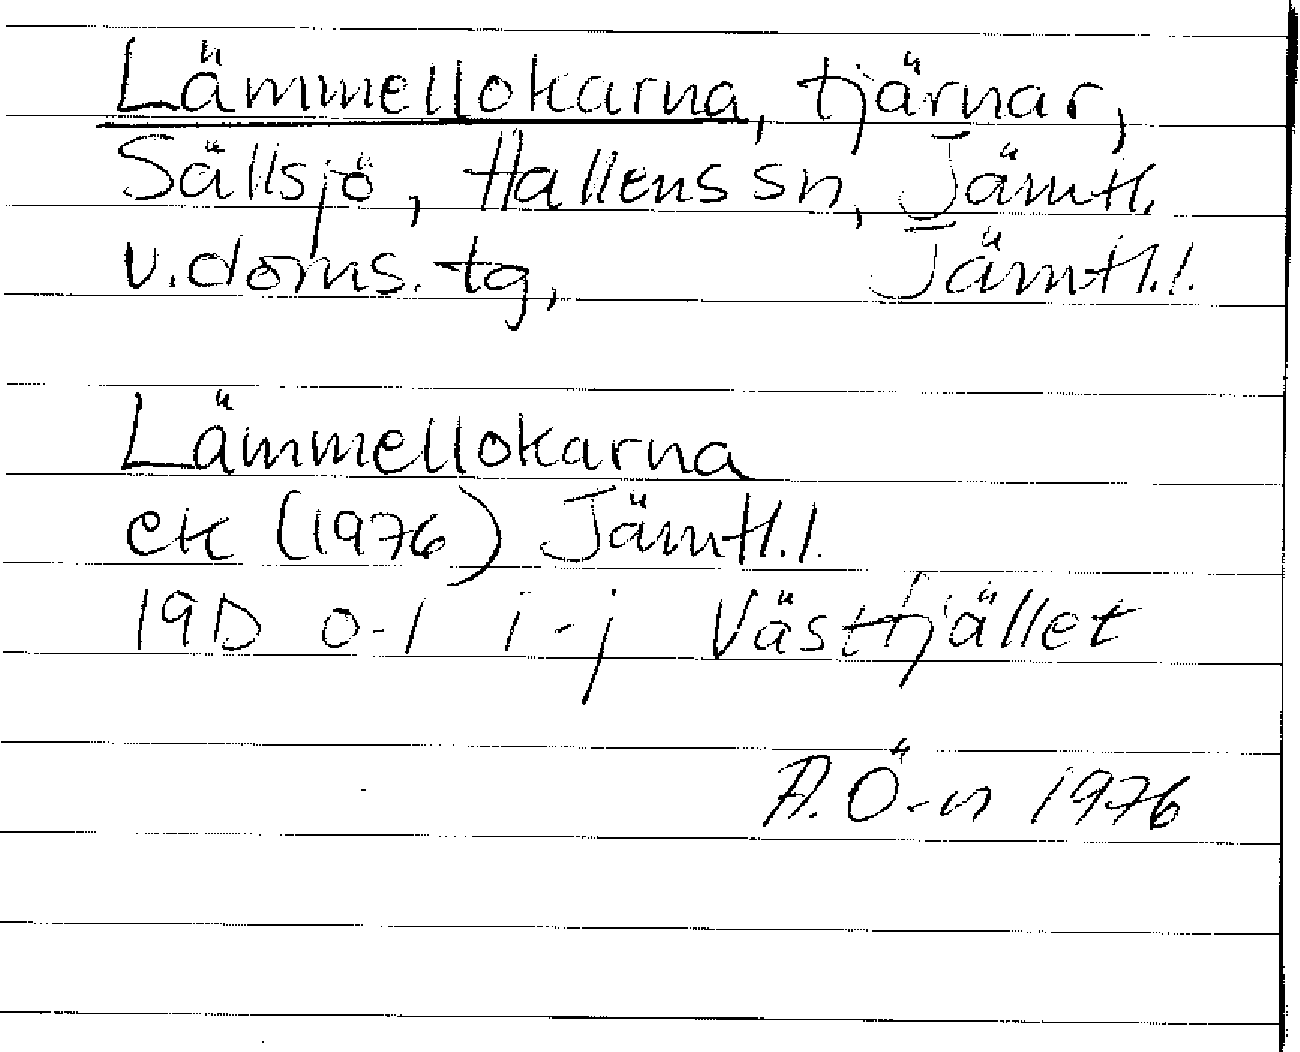 Lämmellokarna, tjärnar,
Sällsjö, Hallens sn, Jämtl.
v. doms. tg, Jämtl.l.
Lämmellokarna
ek (1976) Jämtl.l.
19D 0-1 i-j Västfjället
A.Ö-n 1976